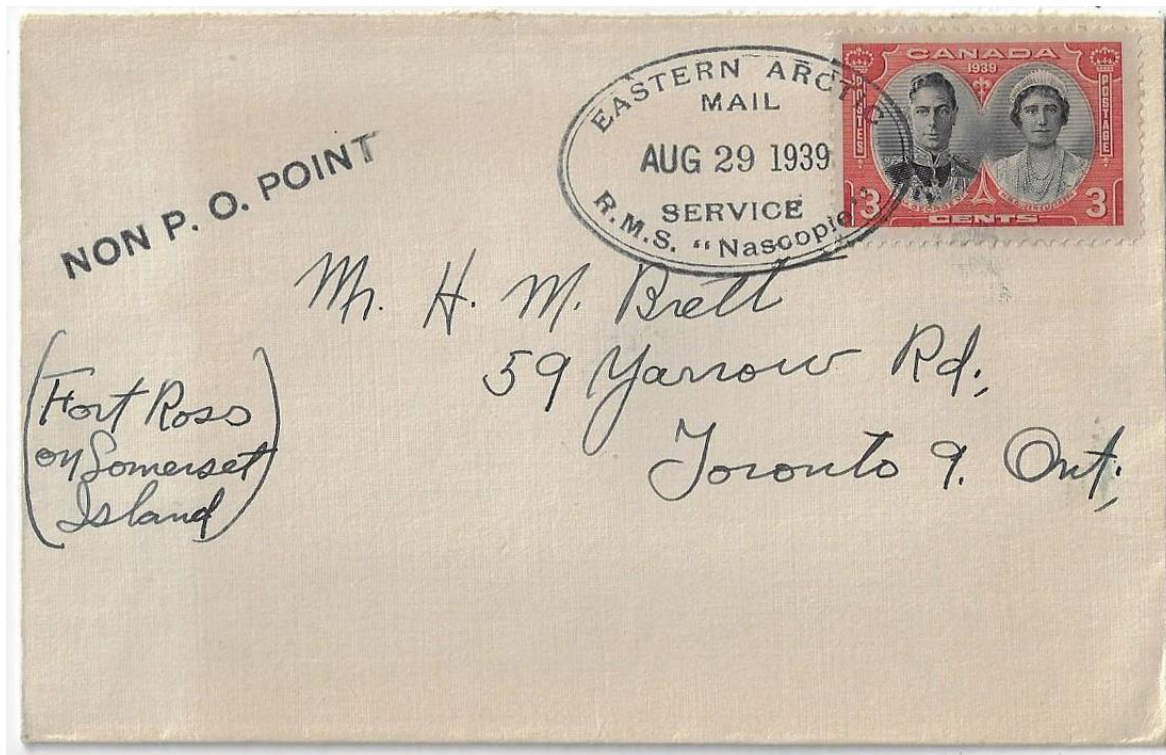 EASTERN ARCTIC
MAIL
AUG 29 1939
SERVICE
R.M.S. "Nascopie"
CANADA
1939
POSTES
POSTAGE
3
CENTS
3
NON P. O. POINT
Mr. H. M. Brett
59 Yarrow Rd.,
Toronto 9. Ont.,
(Fort Ross
on Somerset
Island)